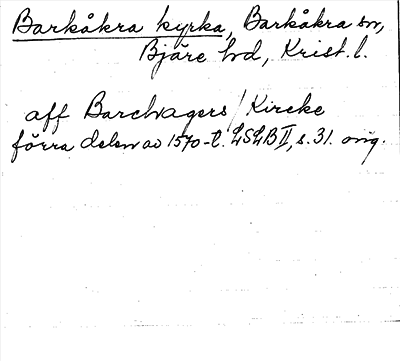 Barkåkra kyrka, Barkåkra sn,
Bjäre hd, Krist. l.
aff Barchagers / Kircke
förra delen av 1570-t. LSLB II, s. 31. orig.